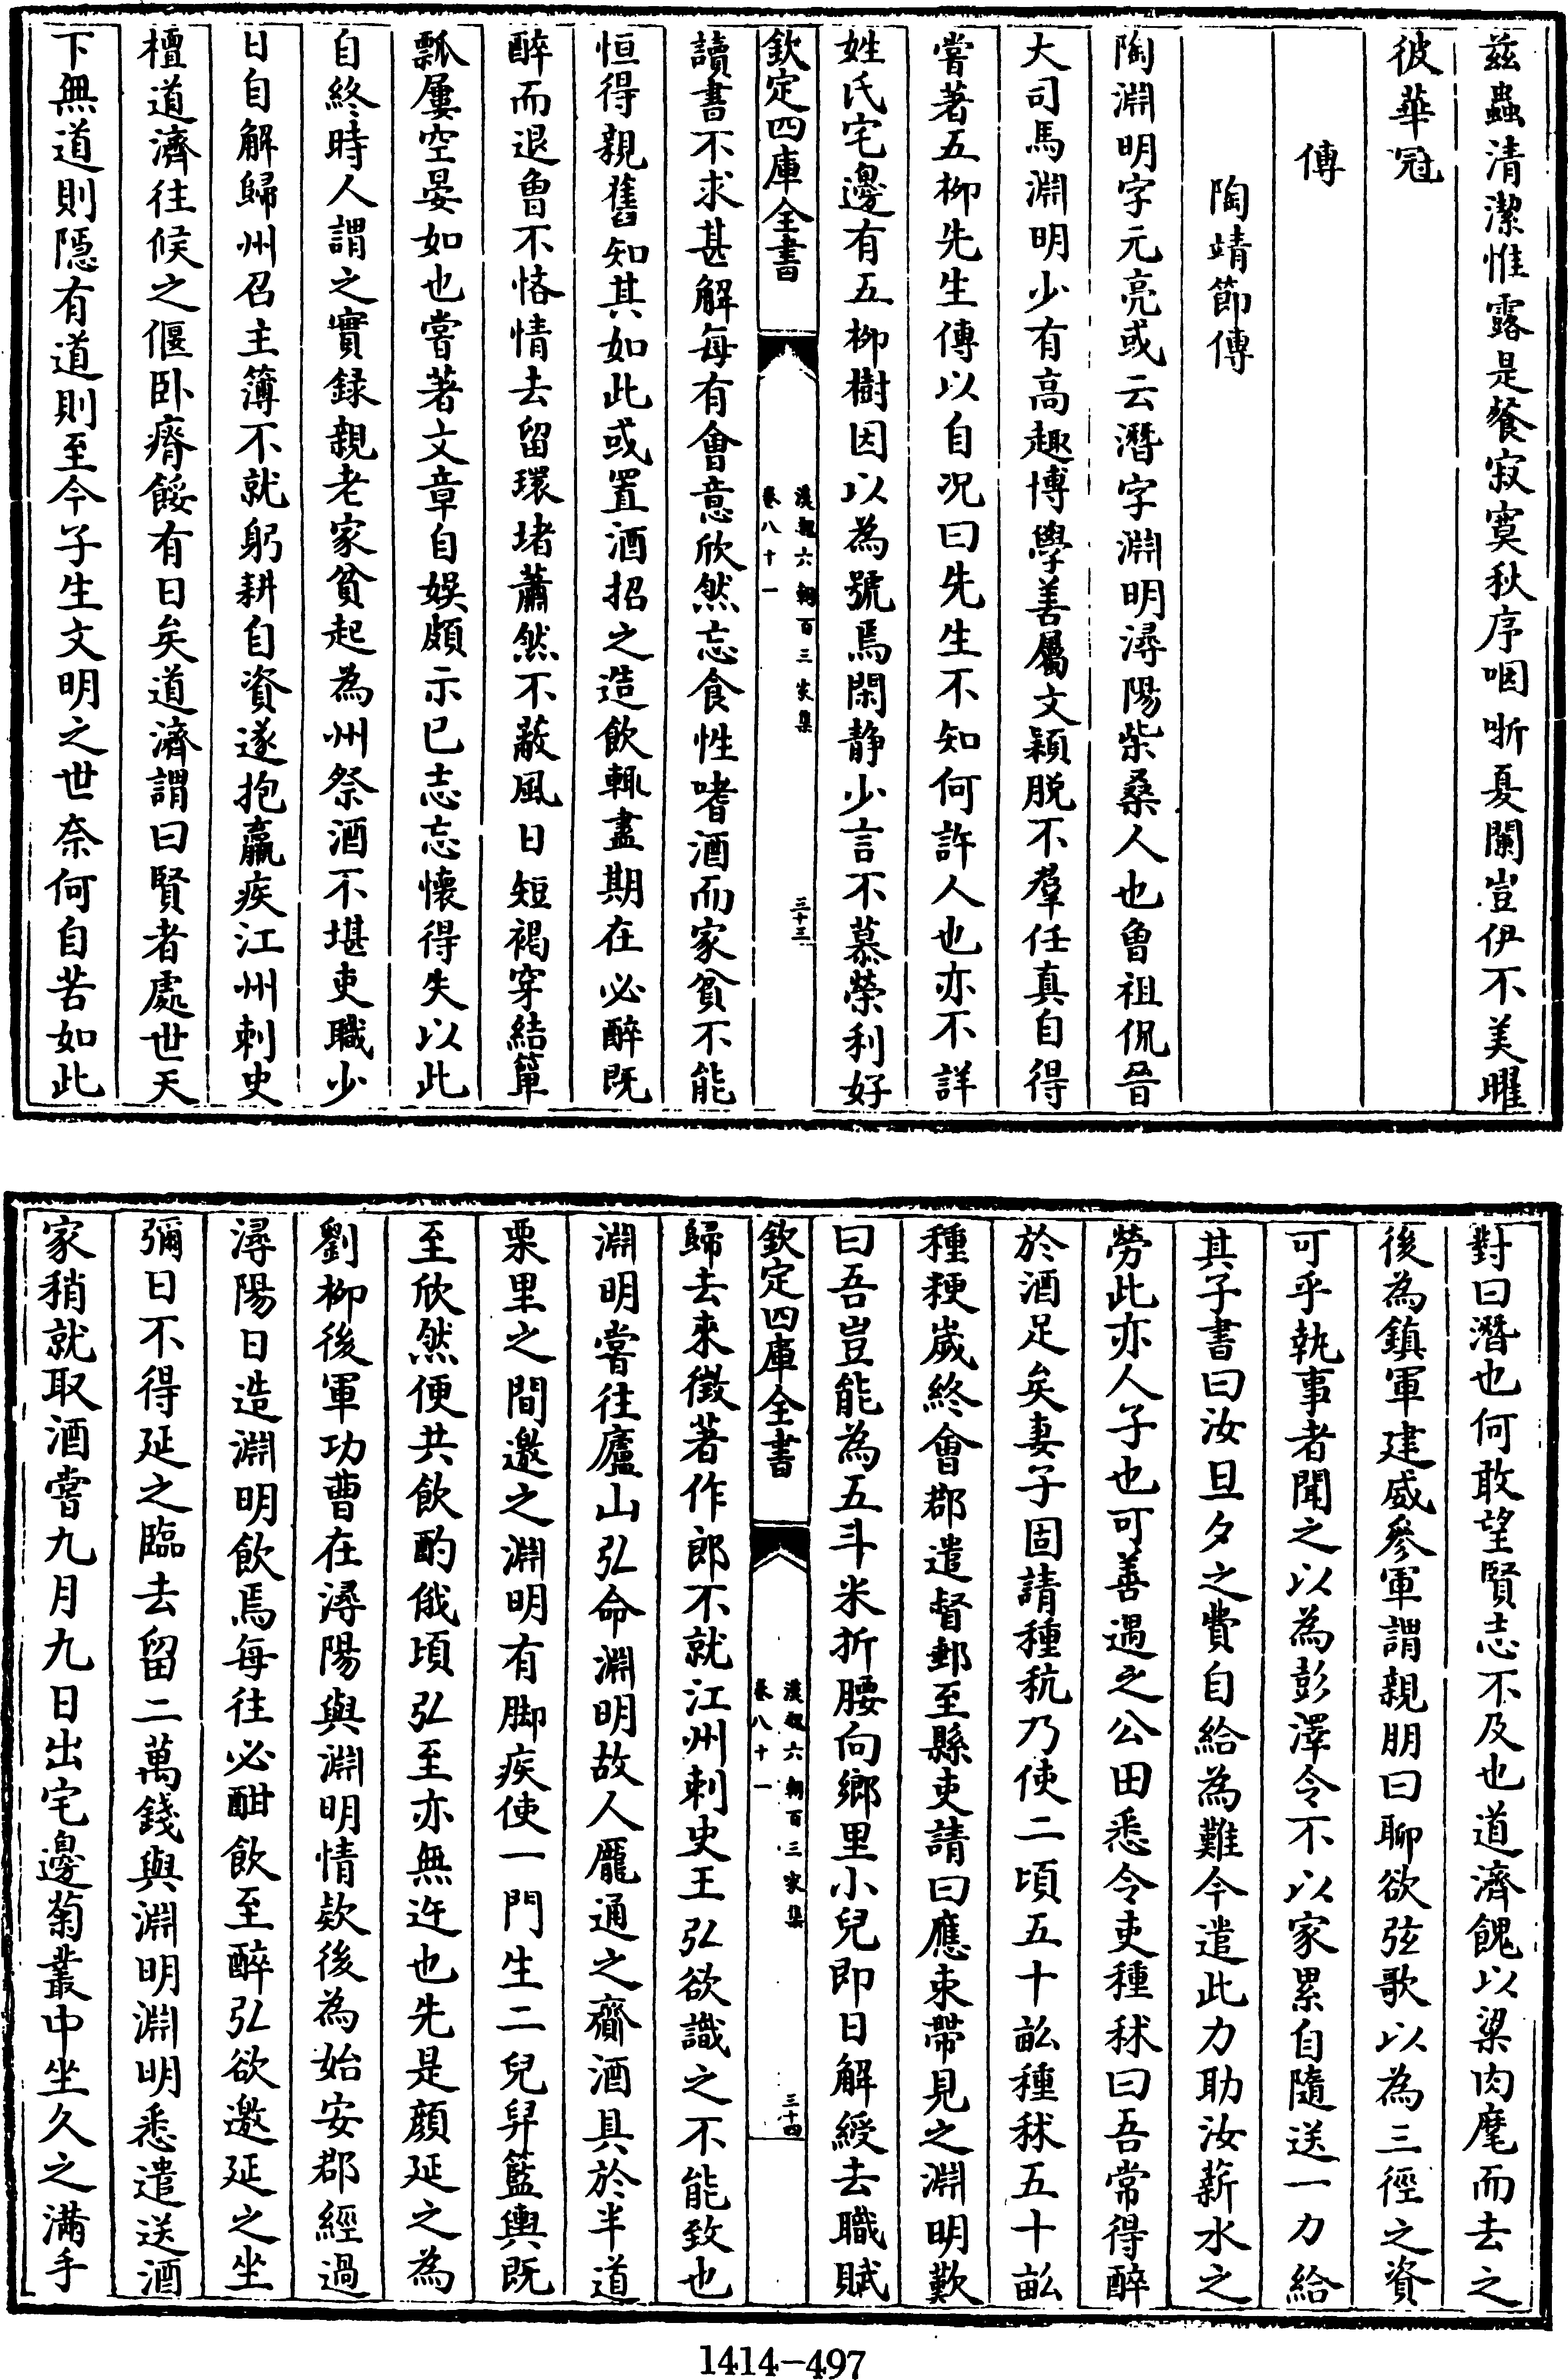 兹蟲清潔惟露是餐寂寞秋序咽嘶夏闌豈伊不美曜
彼華冠
傳
陶靖節傳
陶淵明字元亮或云潛字淵明潯陽柴桑人也曾祖侃晉
大司馬淵明少有高趣博學善屬文穎脱不羣任真自得
嘗著五柳先生傳以自况曰先生不知何許人也亦不詳
姓氏宅邊有五柳樹因以為號焉閑静少言不慕榮利好
欽定四庫全書
漢魏六朝百三家集
卷八十一
三十三
讀書不求甚解每有會意欣然忘食性嗜酒而家貧不能
恒得親舊知其如此或置酒招之造飲輒盡期在必醉既
醉而退曾不恡情去留環堵蕭然不蔽風日短褐穿結簞
瓢屢空晏如也嘗著文章自娱頗示已志忘懷得失以此
自終時人謂之實録親老家貧起為州祭酒不堪吏職少
日自解歸州召主簿不就躬耕自資遂抱羸疾江州刺史
檀道濟往候之偃卧瘠餒有日矣道濟謂曰賢者處世天
下無道則隱有道則至今子生文明之世奈何自苦如此
對曰潛也何敢望賢志不及也道濟餽以粱肉麾而去之
後為鎮軍建威參軍謂親朋曰聊欲弦歌以為三徑之資
可乎執事者聞之以為彭澤令不以家累自隨送一力給
其子書曰汝旦夕之費自給為難今遣此力助汝薪水之
勞此亦人子也可善遇之公田悉令吏種秫曰吾常得醉
於酒足矣妻子固請種秔乃使二頃五十畝種秫五十畝
種粳歲終會郡遣督郵至縣吏請曰應束帶見之淵明歎
曰吾豈能為五斗米折腰向鄉里小兒即日解綬去職賦
欽定四庫全書
漢魏六朝百三家集
卷八十一
三十四
歸去來徵著作郎不就江州刺史王弘欲識之不能致也
淵明嘗往廬山弘命淵明故人龐通之齎酒具於半道
栗里之間邀之淵明有脚疾使一門生二兒舁籃輿既
至欣然便共飲酌俄頃弘至亦無迕也先是顔延之為
劉柳後軍功曹在潯陽與淵明情欵後為始安郡經過
潯陽日造淵明飲焉每往必酣飲至醉弘欲邀延之坐
彌日不得延之臨去留二萬錢與淵明淵明悉遣送酒
家稍就取酒嘗九月九日出宅邊菊叢中坐久之滿手
1414-497